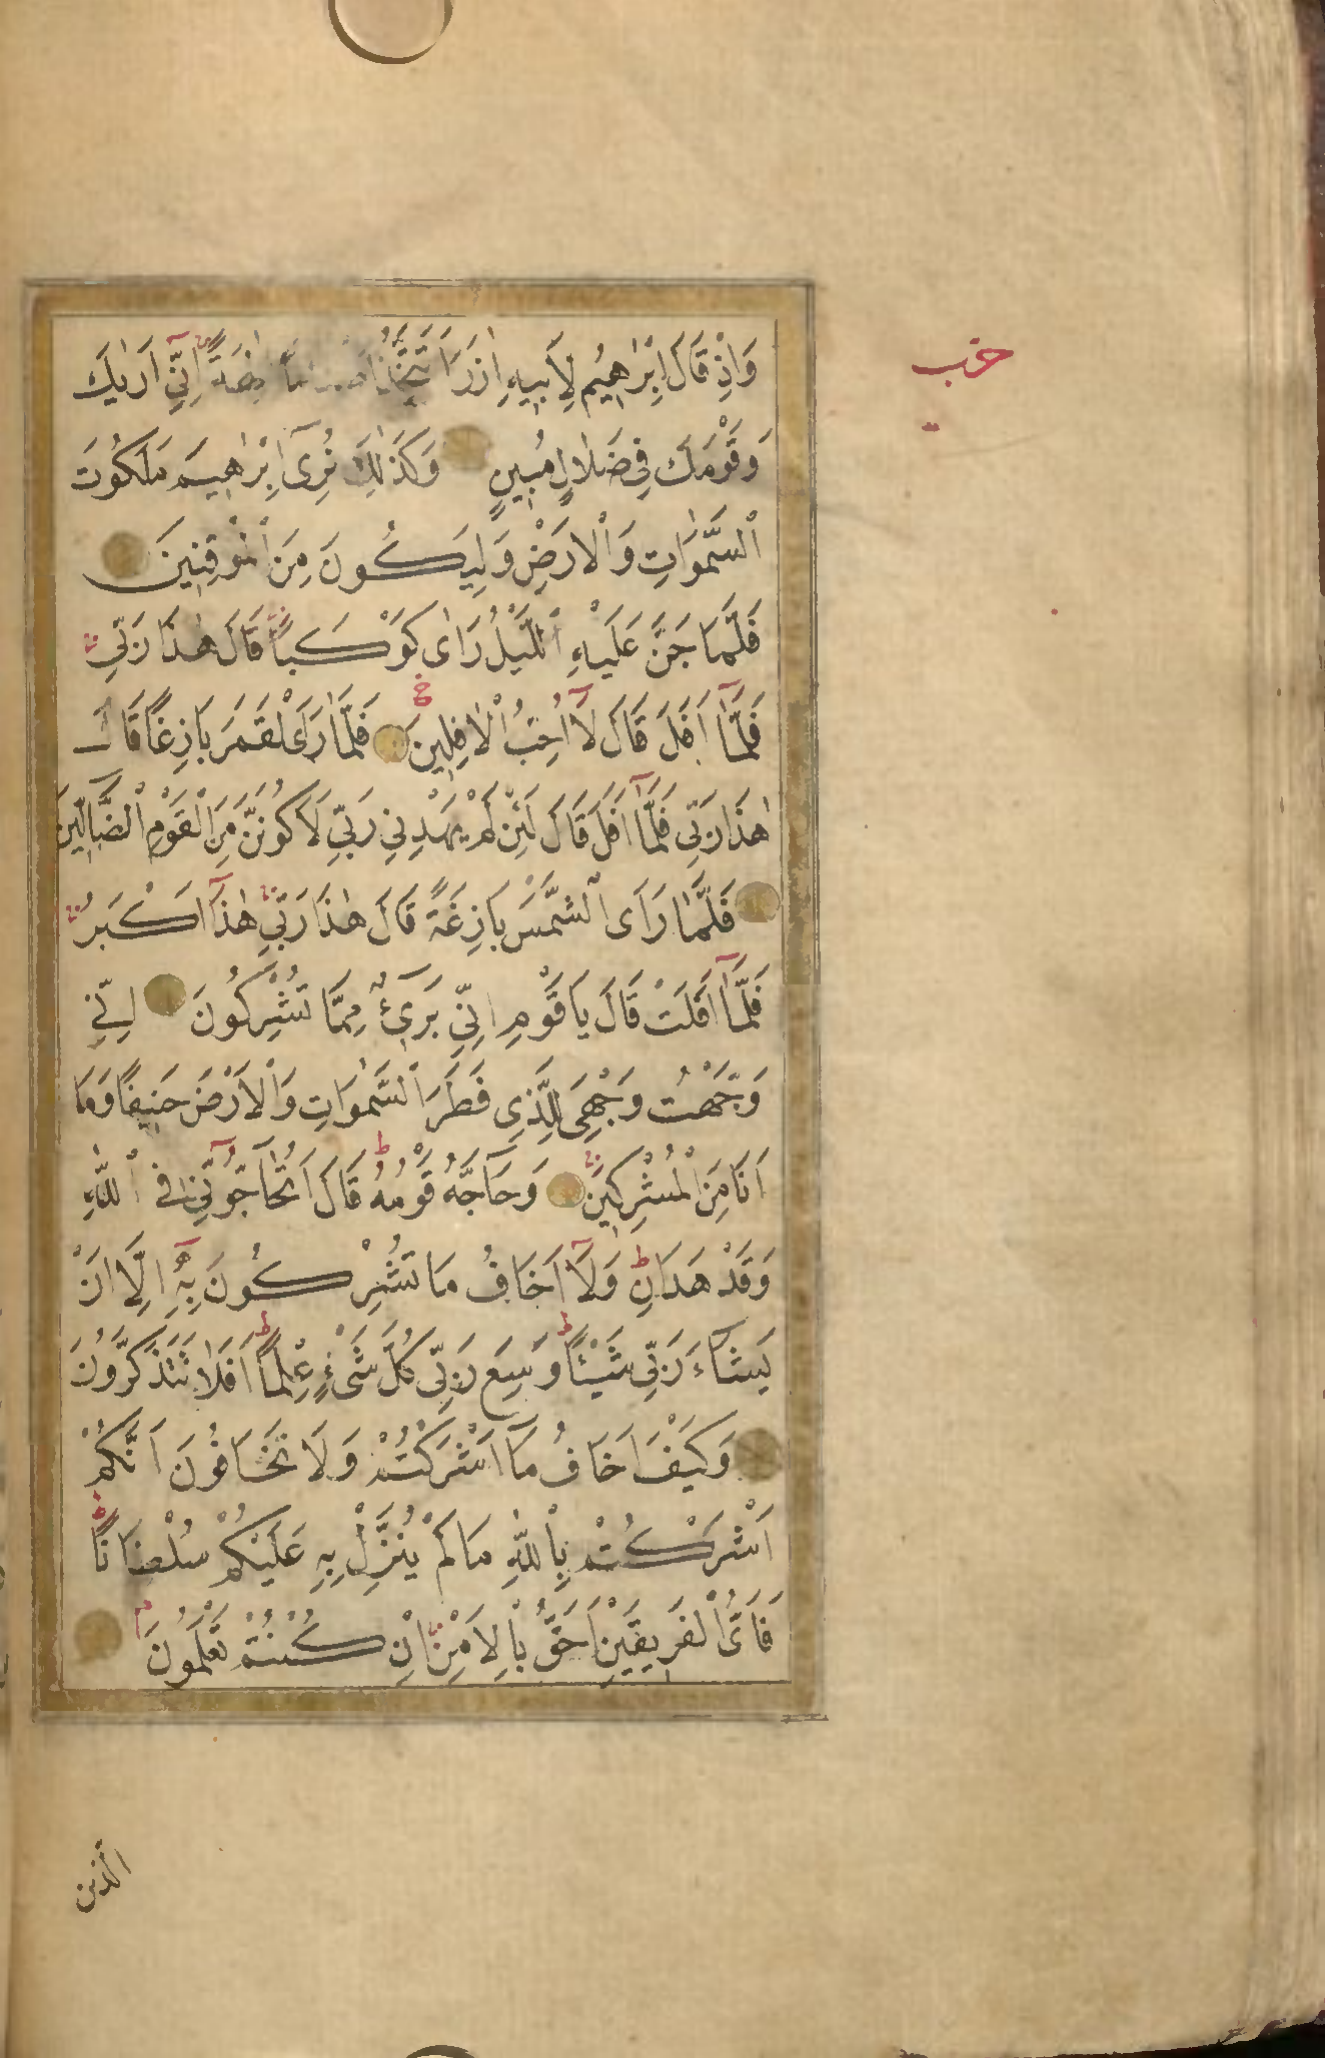 حزب
وَاِذْ قَالَ اِبْرٰهِيمُ لِاَبِيهِ اٰزَرَ اَتَتَّخِذُ اٰلِهَةً اِنِّي اَرٰيكَ
وَقَوْمَكَ فِي ضَلَالٍ مُبِينٍ وَكَذٰلِكَ نُرِي اِبْرٰهِيمَ مَلَكُوتَ
السَّمٰوَاتِ وَالْاَرْضِ وَلِيَكُونَ مِنَ الْمُوقِنِينَ
فَلَمَّا جَنَّ عَلَيْهِ اللَّيْلُ رَاٰى كَوْكَبًا قَالَ هٰذَا رَبِّي
فَلَمَّآ اَفَلَ قَالَ لَآ اُحِبُّ الْاٰفِلِينَ فَلَمَّا رَاَى الْقَمَرَ بَازِغًا قَالَ
هٰذَا رَبِّي فَلَمَّآ اَفَلَ قَالَ لَئِنْ لَمْ يَهْدِنِي رَبِّي لَاَكُونَنَّ مِنَ الْقَوْمِ الضَّآلِّينَ
فَلَمَّا رَاَى الشَّمْسَ بَازِغَةً قَالَ هٰذَا رَبِّي هٰذَآ اَكْبَرُ
فَلَمَّآ اَفَلَتْ قَالَ يَا قَوْمِ اِنِّي بَرِيءٌ مِمَّا تُشْرِكُونَ اِنِّي
وَجَّهْتُ وَجْهِيَ لِلَّذِي فَطَرَ السَّمٰوَاتِ وَالْاَرْضَ حَنِيفًا وَمَآ
اَنَا مِنَ الْمُشْرِكِينَ وَحَآجَّهُ قَوْمُهُ قَالَ اَتُحَآجُّٓونِّي فِي اللّٰهِ
وَقَدْ هَدَانِ وَلَآ اَخَافُ مَا تُشْرِكُونَ بِهِٓ اِلَّآ اَنْ
يَشَآءَ رَبِّي شَيْئًا وَسِعَ رَبِّي كُلَّ شَيْءٍ عِلْمًا اَفَلَا تَتَذَكَّرُونَ
وَكَيْفَ اَخَافُ مَآ اَشْرَكْتُمْ وَلَا تَخَافُونَ اَنَّكُمْ
اَشْرَكْتُمْ بِاللّٰهِ مَا لَمْ يُنَزِّلْ بِهِ عَلَيْكُمْ سُلْطَانًا
فَاَيُّ الْفَرِيقَيْنِ اَحَقُّ بِالْاَمْنِ اِنْ كُنْتُمْ تَعْلَمُونَ
الَّذِينَ